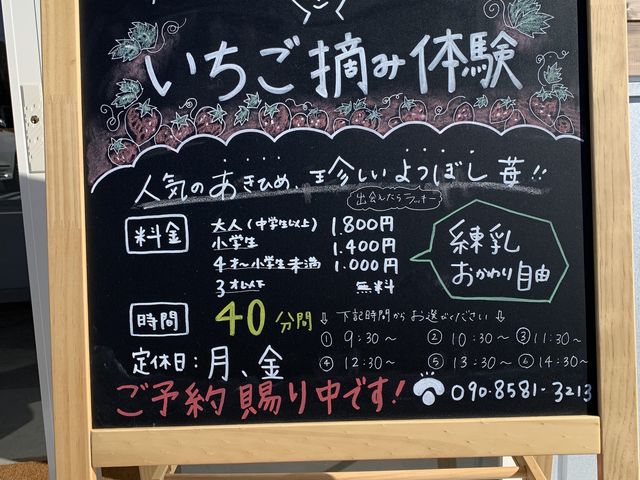 いちご摘み体験
人気のあきひめ、珍しいよつぼし苺!!
出会えたらラッキー
料金
大人(中学生以上) 1.800円
小学生 1.400円
4才~小学生未満 1.000円
3才以下 無料
練乳
おかわり自由
時間 40分間 ⇩ 下記時間からお選びください ⇩
① 9:30~ ② 10:30~ ③ 11:30~
④ 12:30~ ⑤ 13:30~ ⑥ 14:30~
定休日:月、金
ご予約賜り中です! 090-8581-3213